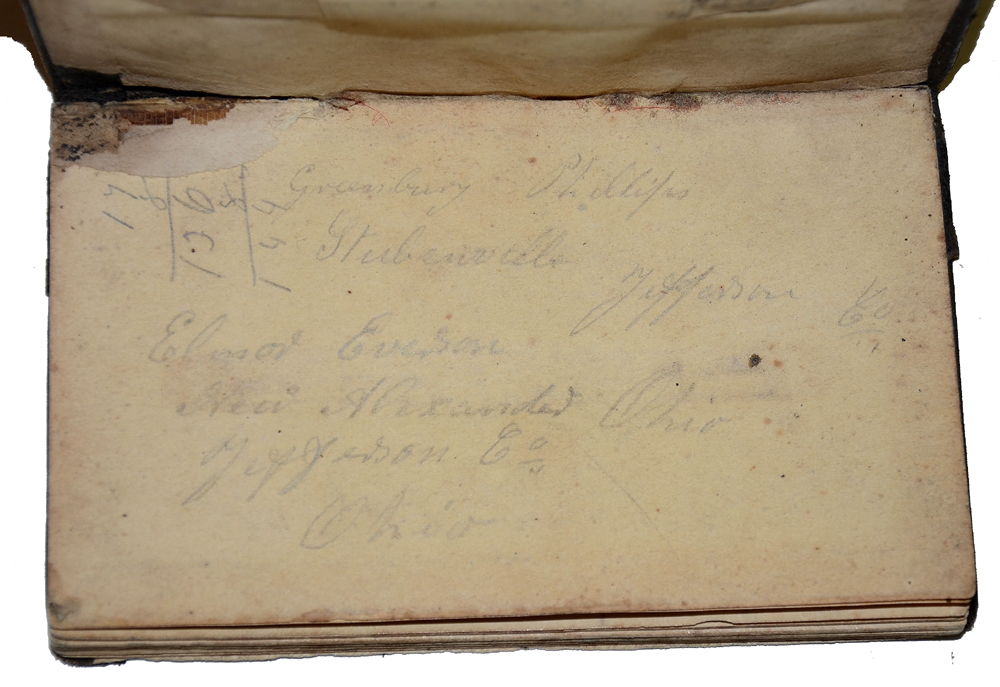 Greenbury Phillips
Stubenvelle
Jefferson Co
Elmor Everson
New Alexander Ohio
Jefferson Co
Ohio